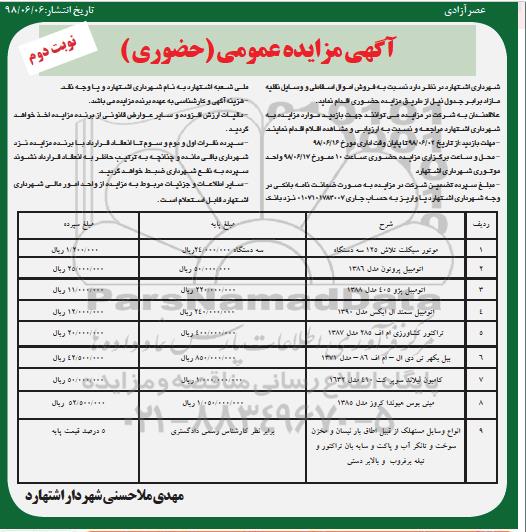 عصر آزادی
تاریخ انتشار: ۹۸/۰۶/۰۶
آگهی مزایده عمومی (حضوری)
نوبت دوم
شهرداری اشتهارد در نظر دارد نسبت به فروش اموال اسقاطی و وسایل نقلیه
مازاد برابر جدول ذیل از طریق مزایده حضوری اقدام نماید.
علاقمندان به شرکت در مزایده می توانند جهت بازدید موارد مزایده به
شهرداری اشتهارد مراجعه و نسبت به ارزیابی و مشاهده اقلام اقدام نمایند.
- مهلت بازدید از تاریخ ۹۸/۰۶/۰۲ تا پایان وقت اداری مورخ ۹۸/۰۶/۱۶
- محل و ساعت برگزاری مزایده حضوری ساعت ۱۰ مورخ ۹۸/۰۶/۱۷ واحد
موتوری شهرداری اشتهارد
- مبلغ سپرده تضمین شرکت در مزایده به صورت ضمانت نامه بانکی در
وجه شهرداری اشتهارد یا واریز به حساب جاری ۰۱۰۷۱۰۱۷۸۳۰۰۷ نزد بانک
ملی شعبه اشتهارد به نام شهرداری اشتهارد و یا وجه نقد
- هزینه آگهی و کارشناسی به عهده برنده مزایده می باشد.
- مالیات ارزش افزوده و سایر عوارض قانونی از برنده مزایده اخذ خواهد
گردید.
- سپرده نفرات اول و دوم و سوم تا انعقاد قرارداد با برنده مزایده نزد
شهرداری باقی مانده و چنانچه به ترتیب حاضر به انعقاد قرارداد نشوند
سپرده به نفع شهرداری ضبط خواهد گردید.
- سایر اطلاعات و جزئیات مربوط به مزایده از واحد امور مالی شهرداری
اشتهارد قابل استعلام است.
ردیف شرح مبلغ پایه مبلغ سپرده
۱ موتور سیکلت تلاش ۱۲۵ سه دستگاه سه دستگاه ۲۴/۰۰۰/۰۰۰ ریال ۱/۲۰۰/۰۰۰ ریال
۲ اتومبیل پروتون مدل ۱۳۸۶ ۵۰۰/۰۰۰/۰۰۰ ریال ۲۵/۰۰۰/۰۰۰ ریال
۳ اتومبیل پژو ۴۰۵ مدل ۱۳۸۸ ۲۲۰/۰۰۰/۰۰۰ ریال ۱۱/۰۰۰/۰۰۰ ریال
۴ اتومبیل سمند ال ایکس مدل ۱۳۹۰ ۲۴۰/۰۰۰/۰۰۰ ریال ۱۲/۰۰۰/۰۰۰ ریال
۵ تراکتور کشاورزی ام اف ۲۸۵ مدل ۱۳۸۷ ۴۰۰/۰۰۰/۰۰۰ ریال ۲۰/۰۰۰/۰۰۰ ریال
۶ بیل بکهو تی دی ال – ام اف ۸۶ – مدل ۱۳۷۱ ۸۵۰/۰۰۰/۰۰۰ ریال ۴۲/۵۰۰/۰۰۰ ریال
۷ کامیون لیلاند سوپر کت ۴۱۰ مدل ۱۶۳۲ ۱/۰۰۰/۰۰۰/۰۰۰ ریال ۵۰/۰۰۰/۰۰۰ ریال
۸ مینی بوس هیوندا کروز مدل ۱۳۸۵ ۱/۰۵۰/۰۰۰/۰۰۰ ریال ۵۲/۵۰۰/۰۰۰ ریال
۹ انواع وسایل مستهلک از قبیل اطاق بار نیسان و مخزن
سوخت و تانکر آب و پاکت و سایه بان تراکتور و
تیغه برفروب و بالابر دستی
برابر نظر کارشناس رسمی دادگستری
۵ درصد قیمت پایه
مهدی ملاحسنی شهردار اشتهارد
ParsNamadData
پایگاه اطلاع رسانی مناقصه و مزایده
۰۲۱-۸۸۳۴۹۶۷۰-۵